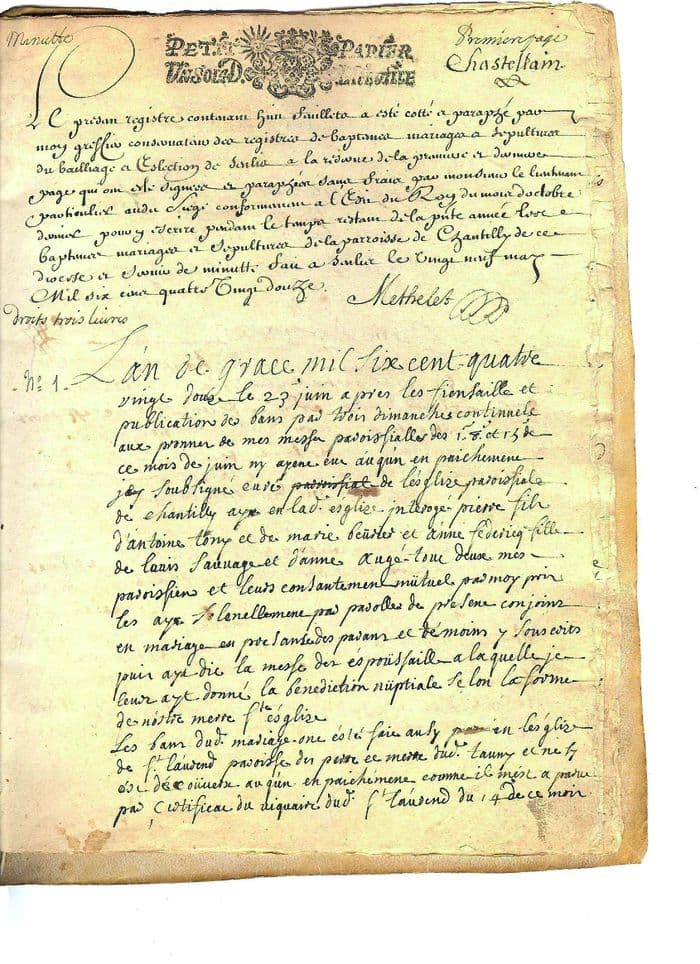 Minutte
PETIT PAPIER
UN SOL 4 D. LA FEUILLE
Premiere page
Chastellain
Ce presan registre contenant huit feuillets a esté cotté et paraphé par
moy greffier conservateur des registres de baptemes mariages et sepultures
du bailliage et Eslection de Senlis a la reserve de la premiere et derniere
page qui ont esté signées et paraphées sans frais par monsieur le lieutenant
particulier audit siege conformement a l'Edit du Roy du mois d'octobre
dernier pour y escrire pendant le temps restant de la pnte année les
baptemes mariages et sepultures de la parroisse de Chantilly de ce
diocese et servir de minutte fait a Senlis le vingt neuf may
Mil six cent quatre vingt douze.
Methelet
droits trois livres
N.º 1.
L'an de grace mil six cent quatre
vingt douse le 23 juin apres les fiensaille et
publication de bans par trois dimanches continuels
aux pronner de mes messe paroissialles des 1.ʳ 8.ᵉ et 15 de
ce mois de juin ny ayent eut auqun en paichement
jey soubsigné curé de l'ésglize paroissiale
de chantilly aye en lad. esglize interogé pierre fils
d'antoine tony et de marie beurier et anne federicq fille
de louis sauvage et d'anne augé tous deux mes
paroissiens et leurs consantement mütuel par moy pris
les aye solenellement par parolles de present conjoins
en mariage en presante des parans et témoins y souscrits
puis aye dit la messe des espoussaille a laquelle je
leur ayt donné la benediction nüptiale selon la forme
de nóstre merre s.te ésglize
Les bans dud. mariage ont esté fait ausy en lésglize
de s.t laurend paroisse des perre et merre dud. tauny et ne sy
est décoüvert auqun en paichémene comme il mést a parue
par certificat du viquaire dud. s.t laurend du 14 de ce mois